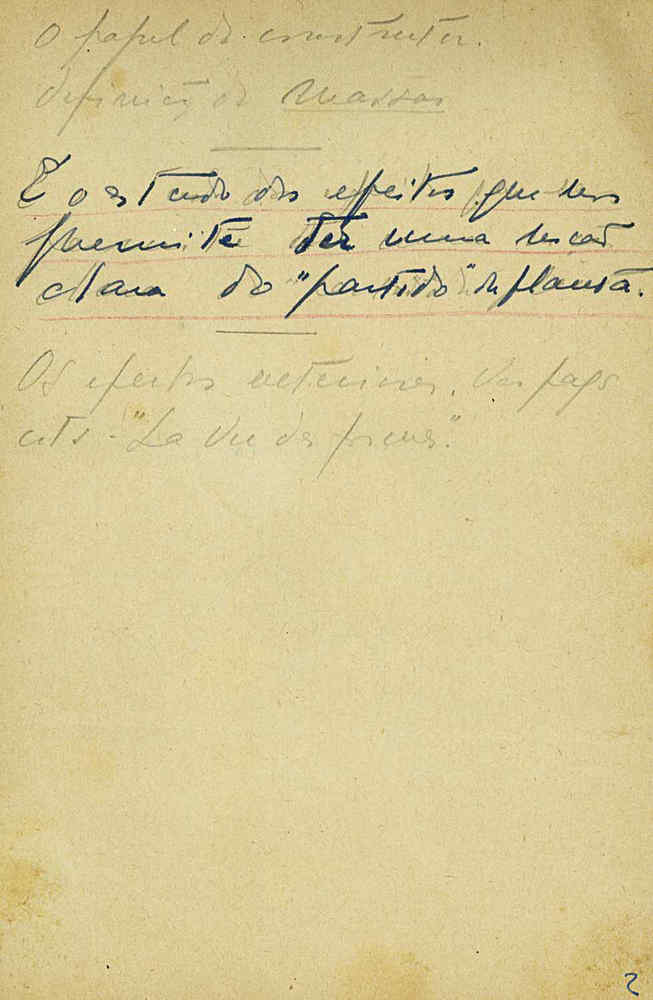 O papel do construtor.
definição de massas
É o estudo dos efeitos que nos
permite ter uma noção
clara do "partido" de planta.
Os efeitos exteriores. Ver pag.
"La Vie des formes".
2